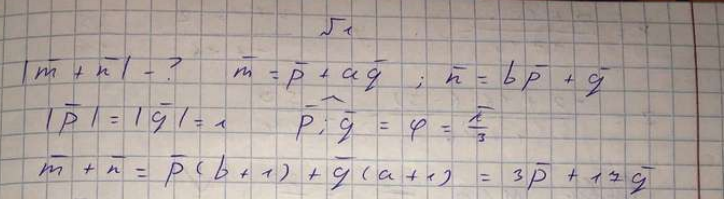 √1
|m̅ + n̅| - ? m̅ = p̅ + aq̅ ; n̅ = bp̅ + q̅
|p̅| = |q̅| = 1 p̅ ; q̅ = φ = π/3
m̅ + n̅ = p̅(b+1) + q̅(a+1) = 3p̅ + 17q̅